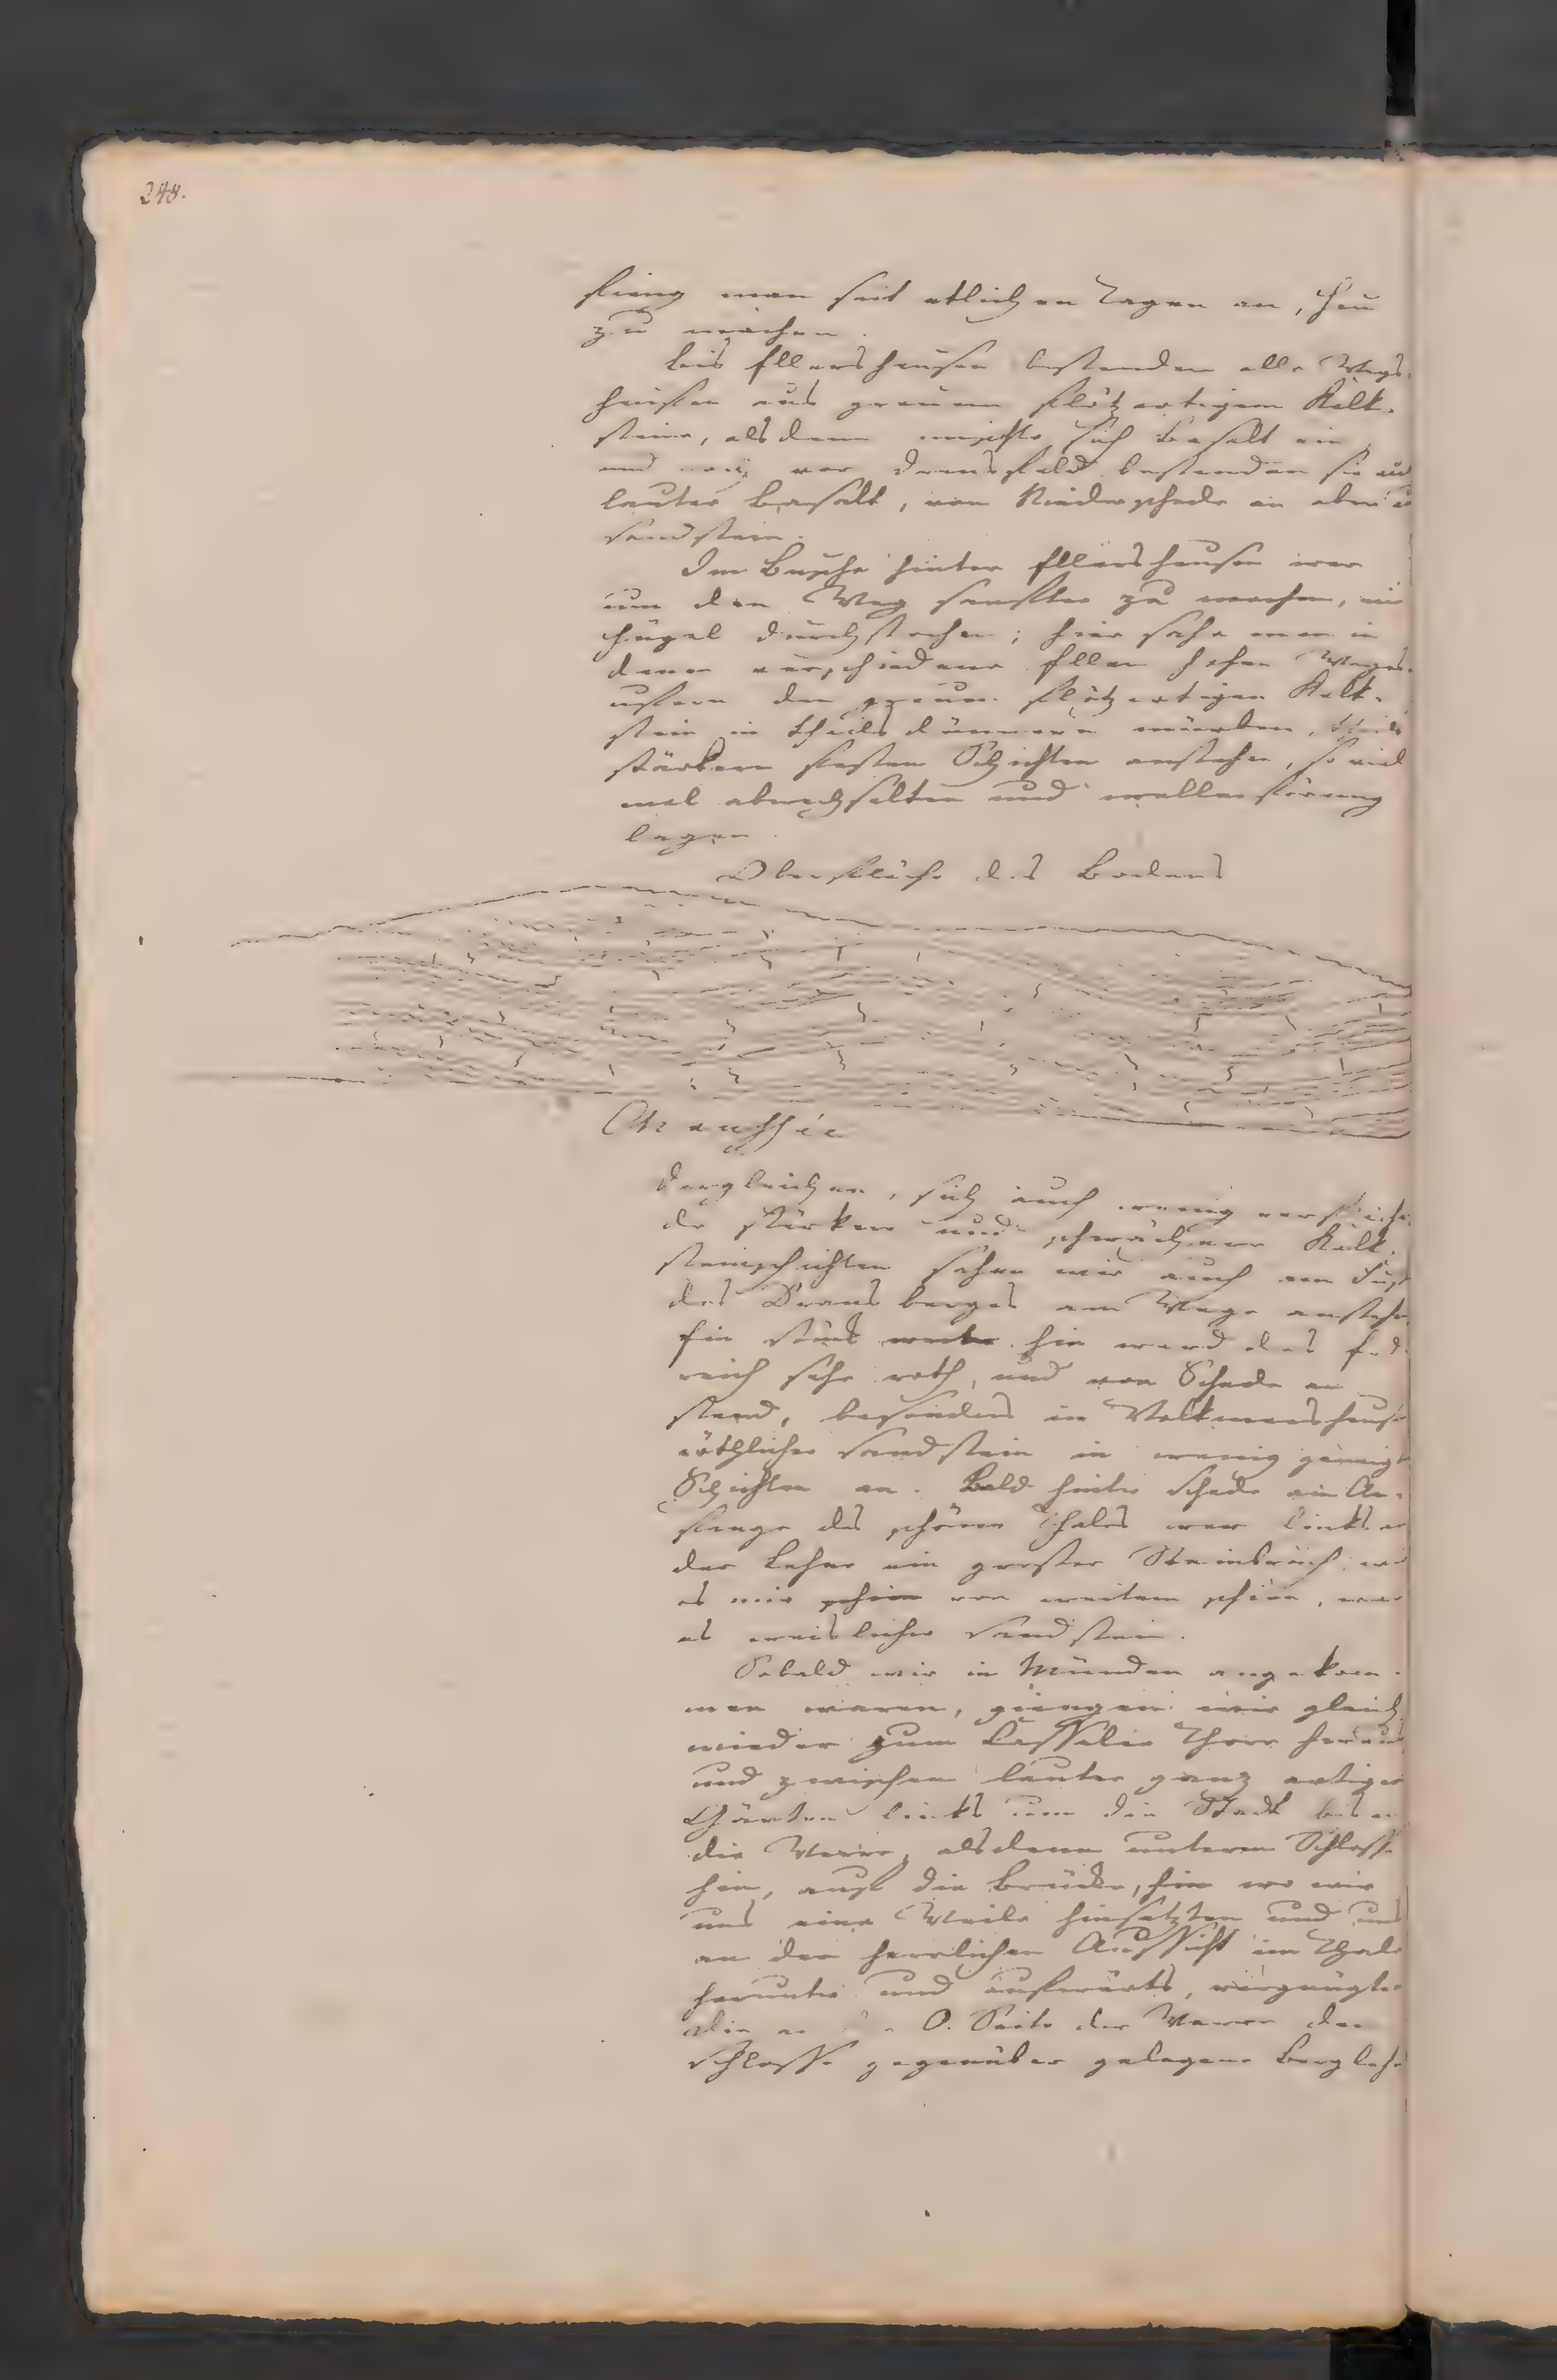 248.
fieng man seit etlichen Tagen an, Heu
zu machen.
Bis Ellershausen bestanden alle Wege-
haufen aus grauem flötzartigem Kalk-
steine, alsdann mischte sich Basalt ein,
und vor Dransfeld bestanden sie aus
lauter Basalt, von Niederschede an aber aus
Sandstein.
Im Busche hinter Ellershausen war
um den Weg sanfter zu machen, ein
Hügel durchstochen; hier sahe man in
denen verschiedene Ellen hohen Weges-
ufern den grauen flötzartigen Kalk-
stein in theils dünnern mürben, theils
stärkern festen Schichten anstehen, so viel
mal abwechselten und wellenförmig
lagen.
Oberfläche des Bodens
Chaussée
Dergleichen, sich auch wenig
de stärkere und schwächere Kalk-
steinschichten sahen wir auch am Fuse
des Dransberges am Wege anstehen
Ein Stück weiter hin ward das Erd-
reich sehr roth, und von Schede an
stand, besonders in Volkmarshausen
röthlicher Sandstein in wenig geneigten
Schichten an. Bald hinter Schede am An-
fange des schönen Thales war links an
der Lehne ein groser Steinbruch, wie
es mir schien von weitem schien, war
es weislicher Sandstein.
Sobald wir in Münden angekom-
men waren, giengen wir gleich
wieder zum Casseler Thore heraus
und zwischen lauter ganz artigen
Gärten links um die Stadt bis an
die Werre, alsdann unterm Schlosse
hin, auf die Brücke, hin wo wir
uns eine Weile hinsetzten und uns
an der herrlichen Aussicht im Thale
herunter und aufwärts, vergnügten
Die O. Seite der Werre dem
Schlosse gegenüber gelegene Berglehne